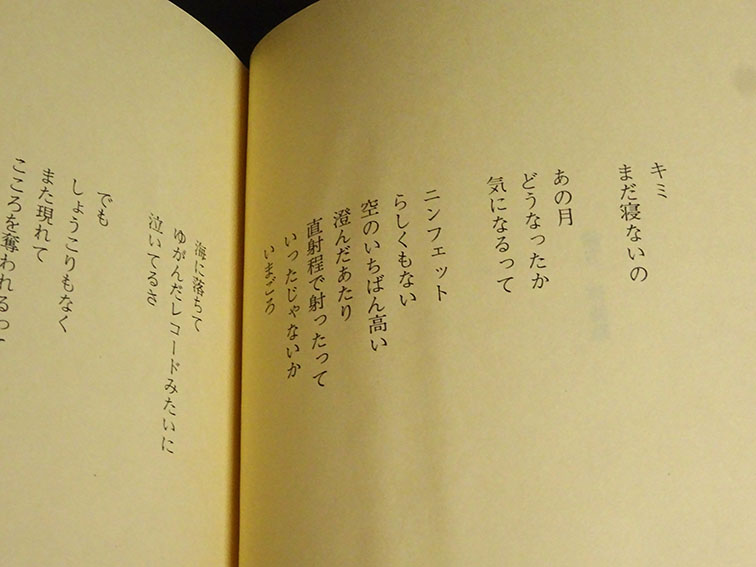 キミ
まだ寝ないの
あの月
どうなったか
気になるって
ニンフェット
らしくもない
空のいちばん高い
澄んだあたり
直射程で射ったって
いったじゃないか
いまごろ
海に落ちて
ゆがんだレコードみたいに
泣いてるさ
でも
しょうこりもなく
また現れて
こころを奪われるっ